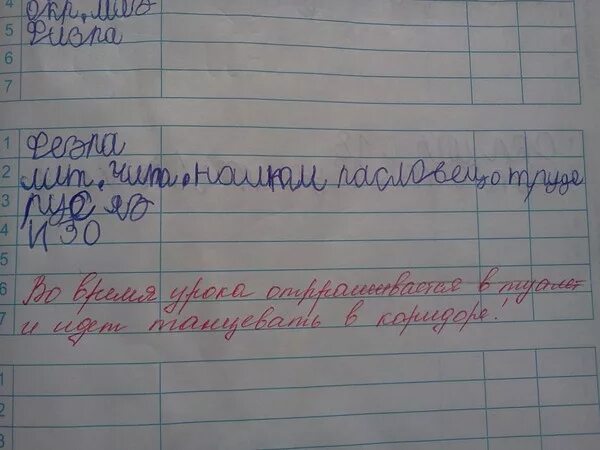 4 окр. мир
5 Физра
6
7
1 Феэра
2 лит. чита. наизкам пасловец о труде
3 рус яз
4 ИЗО
5
6 Во время урока отпрашивается в туалет
7 и идет танцевать в коридоре!
1
2
3